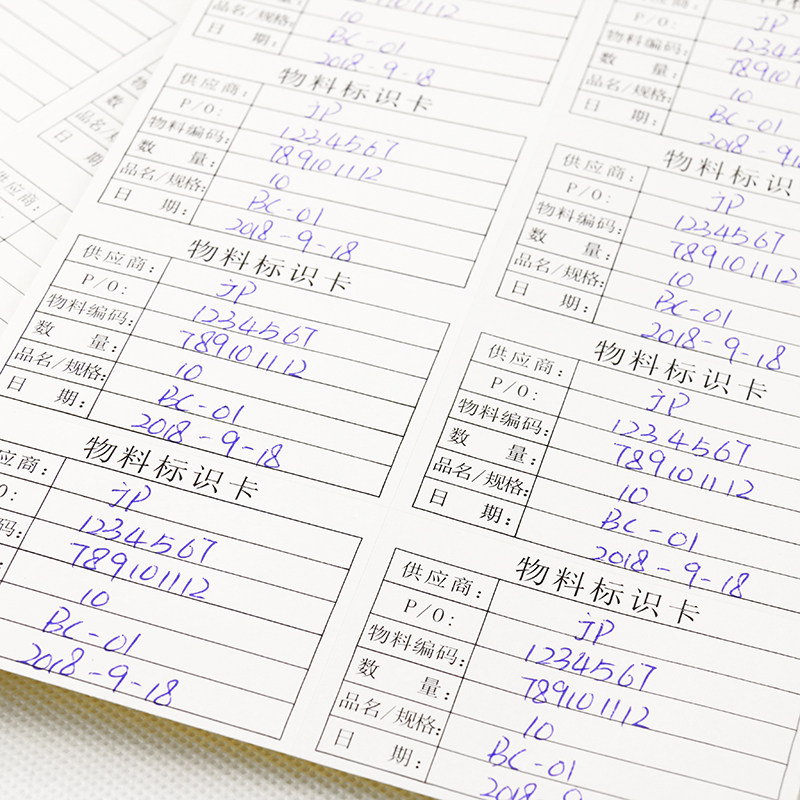 品名/规格: 10
日 期: BC-01
2018-9-18
物料标识卡
供应商: JP
P/O: 1234567
物料编码: 789101112
数 量: 10
品名/规格: BC-01
日 期: 2018-9-18
物料标识卡
供应商: JP
P/O: 1234567
物料编码: 789101112
数 量: 10
品名/规格: BC-01
日 期: 2018-9-18
物料标识卡
应商: JP
O: 1234567
码: 789101112
10
BC-01
2018-9-18
P/O: JP
物料编码: 12345
数 量: 78910
品名/规格: 10
日 期: BC-01
2018-9-1
物料标识
供应商: JP
P/O: 1234567
物料编码: 789101112
数 量: 10
品名/规格: BC-01
日 期: 2018-9-18
物料标识卡
供应商: JP
P/O: 1234567
物料编码: 789101112
数 量: 10
品名/规格: BC-01
日 期: 2018-9-18
物料标识卡
供应商: JP
P/O: 1234567
物料编码: 789101112
数 量: 10
品名/规格: BC-01
日 期: 2018-9
数
品名/
日 期:
供应商: